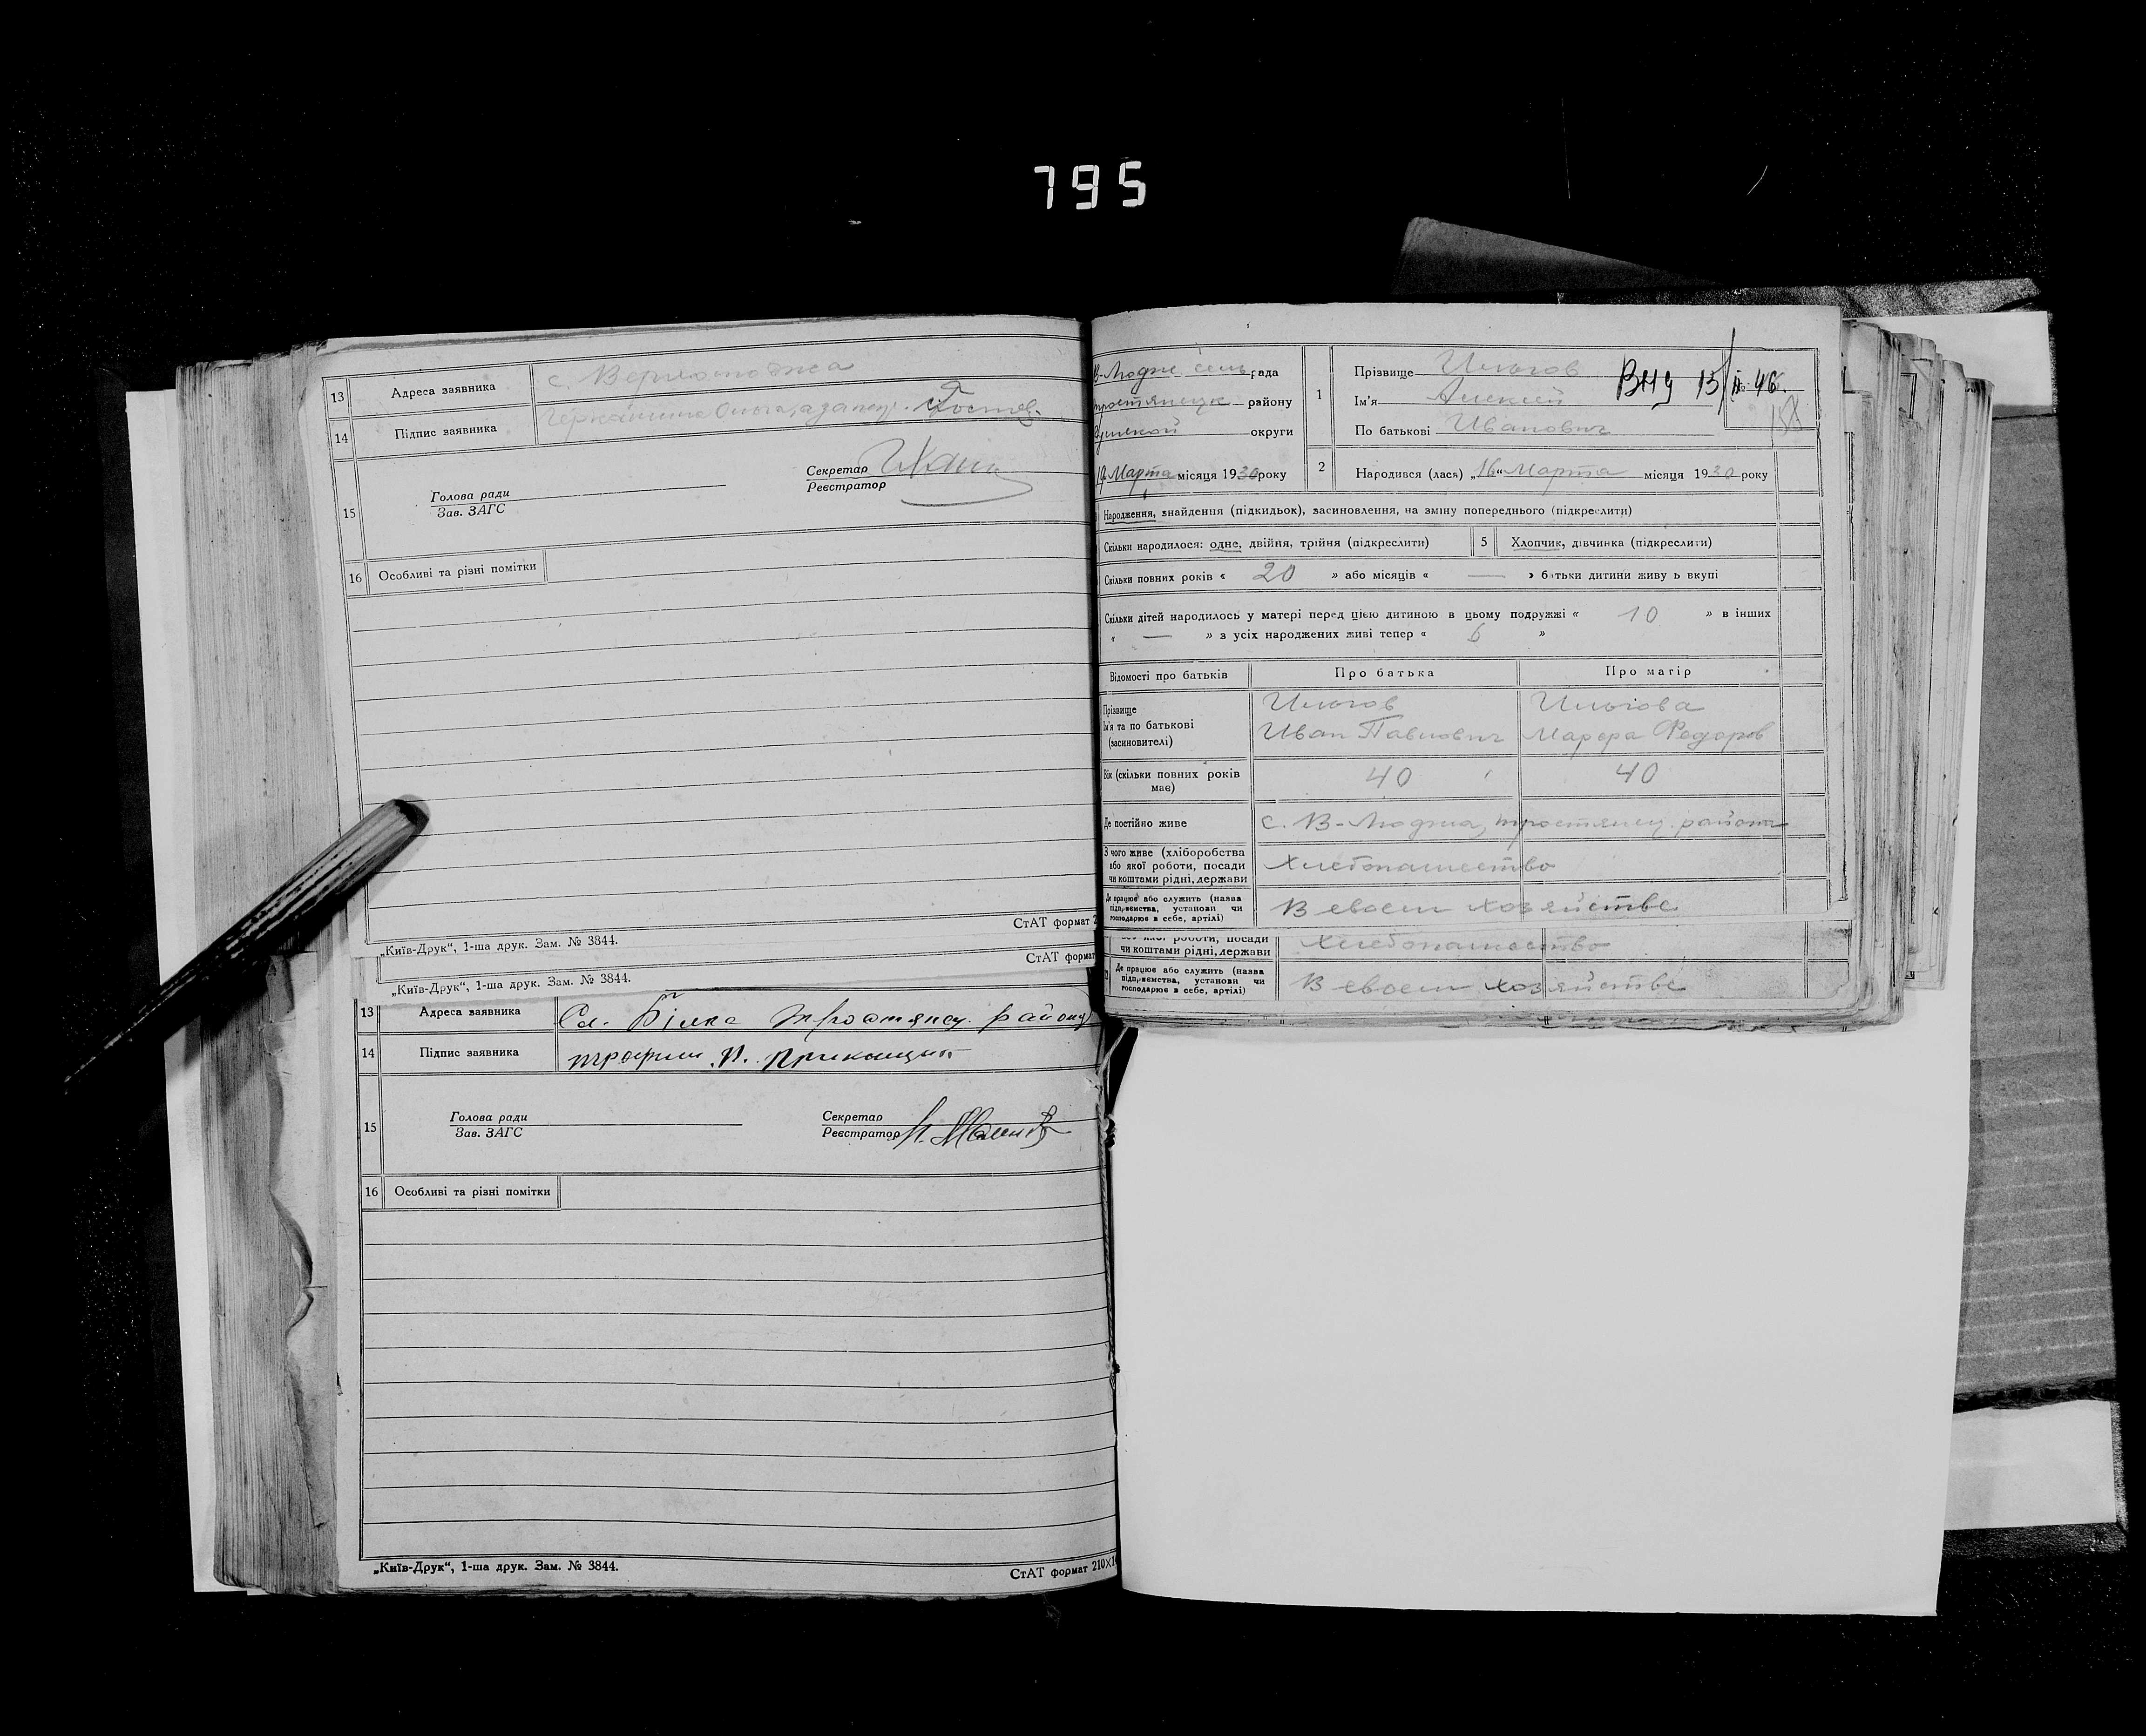 795
13 Адреса заявника с.
14 Підпис заявника
15 Голова ради
Зав. ЗАГС
Секретар
Реєстратор
16 Особливі та різні помітки
СтАТ формат 2
„Київ-Друк“, 1-ша друк. Зам. № 3844.
СтАТ формат
„Київ-Друк“, 1-ша друк. Зам. № 3844.
13 Адреса заявника Сл. Білка Тростянец. району
14 Підпис заявника
15 Голова ради
Зав. ЗАГС
Секретар
Реєстратор
16 Особливі та різні помітки
„Київ-Друк“, 1-ша друк. Зам. № 3844.
СтАТ формат 210×1
рада
району
округи
19 Марта місяця 1930 року
1 Прізвище
Ім'я Алексей
По батькові Иванович
ВНУ 15/II 46
158
2 Народився (лася) „16“ Марта місяця 1930 року
Народження, знайдення (підкидьок), засиновлення, на зміну попереднього (підкреслити)
Скільки народилося: одне, двійня, трійня (підкреслити) 5 Хлопчик, дівчинка (підкреслити)
Скільки повних років « 20 » або місяців « — » батьки дитини живу ь вкупі
Скільки дітей народилось у матері перед цією дитиною в цьому подружжі « 10 » в інших
« — » з усіх народжених живі тепер « 6 »
Відомості про батьків Про батька Про матір
Прізвище
Ім'я та по батькові
(засиновителі)
Иван Павлович
Федоров
Вік (скільки повних років
має)
40 40
Де постійно живе с. В-Люджа, тростянец. района
З чого живе (хліборобства
або якої роботи, посади
чи коштами рідні, держави
Хлебопашество
Де працює або служить (назва
підприємства, установи чи
господарює в себе, артілі)
В своем хозяйстве
або якої роботи, посади
чи коштами рідні, держави
Хлебопашество
Де працює або служить (назва
підприємства, установи чи
господарює в себе, артілі)
В своем хозяйстве